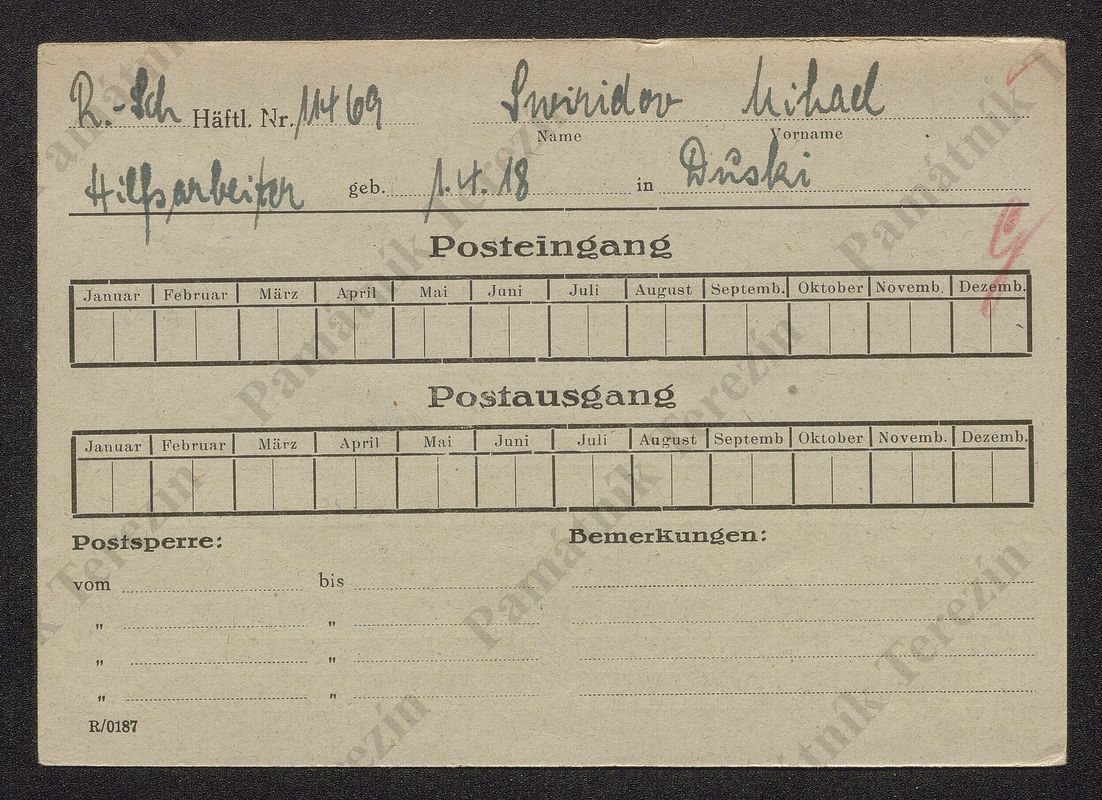 R.-Sch Häftl. Nr. 11469 Swiridov Mihael
Name Vorname
Hilfsarbeiter geb. 1.4.18 in Duski
Posteingang
Januar Februar März April Mai Juni Juli August Septemb. Oktober Novemb. Dezemb.
Postausgang
Januar Februar März April Mai Juni Juli August Septemb Oktober Novemb. Dezemb.
Postsperre: Bemerkungen:
vom bis
" "
" "
" "
R/0187
Památník Terezín